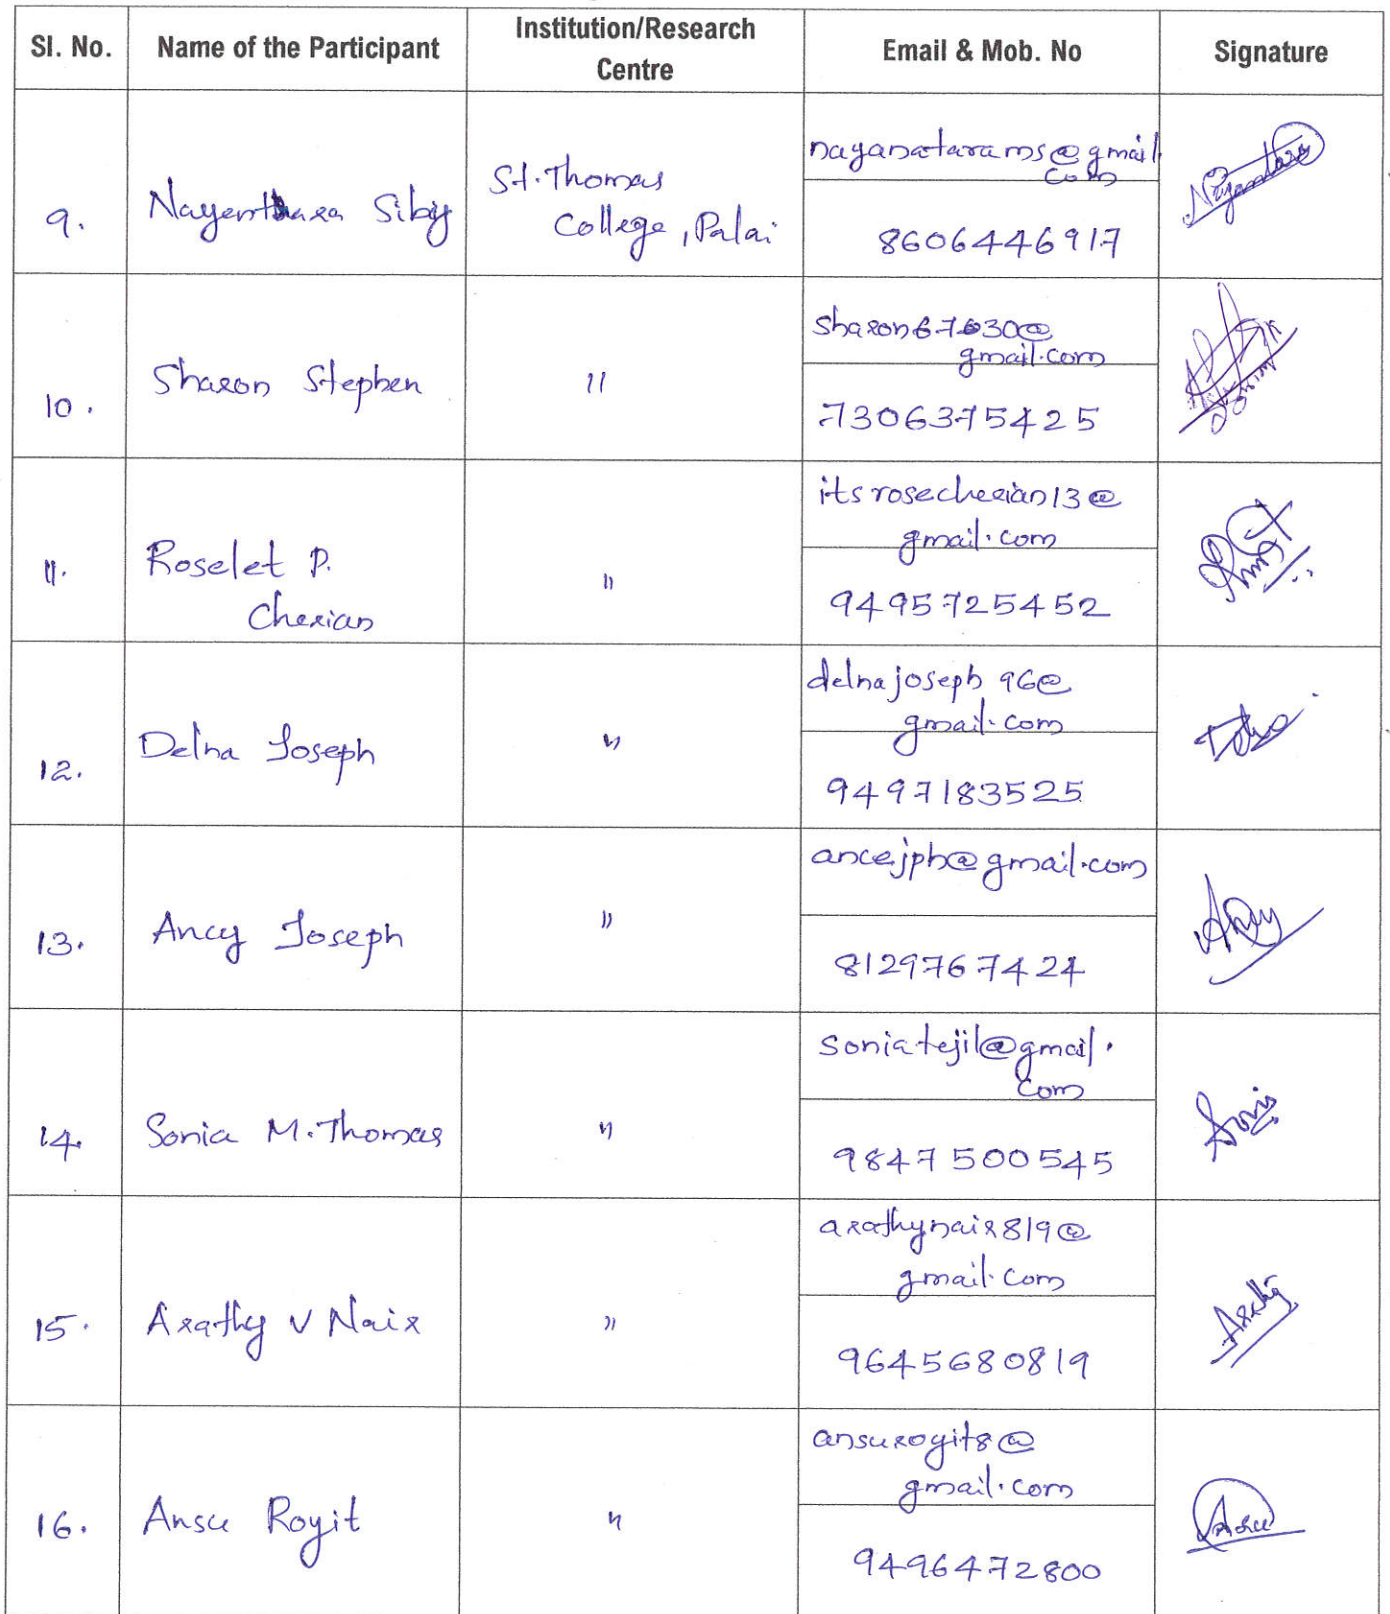 Sl. No. Name of the Participant Institution/Research Centre Email & Mob. No Signature
9. Nayanthara Siby St. Thomas College, Palai nayanatarams@gmail.com
8606446917
10. Sharon Stephen 11 sharon67630@
gmail.com
7306375425
11. Roselet P. Cherian " itsrosecherian13@
gmail.com
9495725452
12. Delna Joseph " delnajoseph96@
gmail.com
9497183525
13. Ancy Joseph " ancejph@gmail.com
8129767424
14. Sonia M. Thomas " soniatejil@gmail.
com
9847500545
15. Arathy V Nair " arathynair819@
gmail.com
9645680819
16. Ansu Royit " ansuroyit8@
gmail.com
9496472800